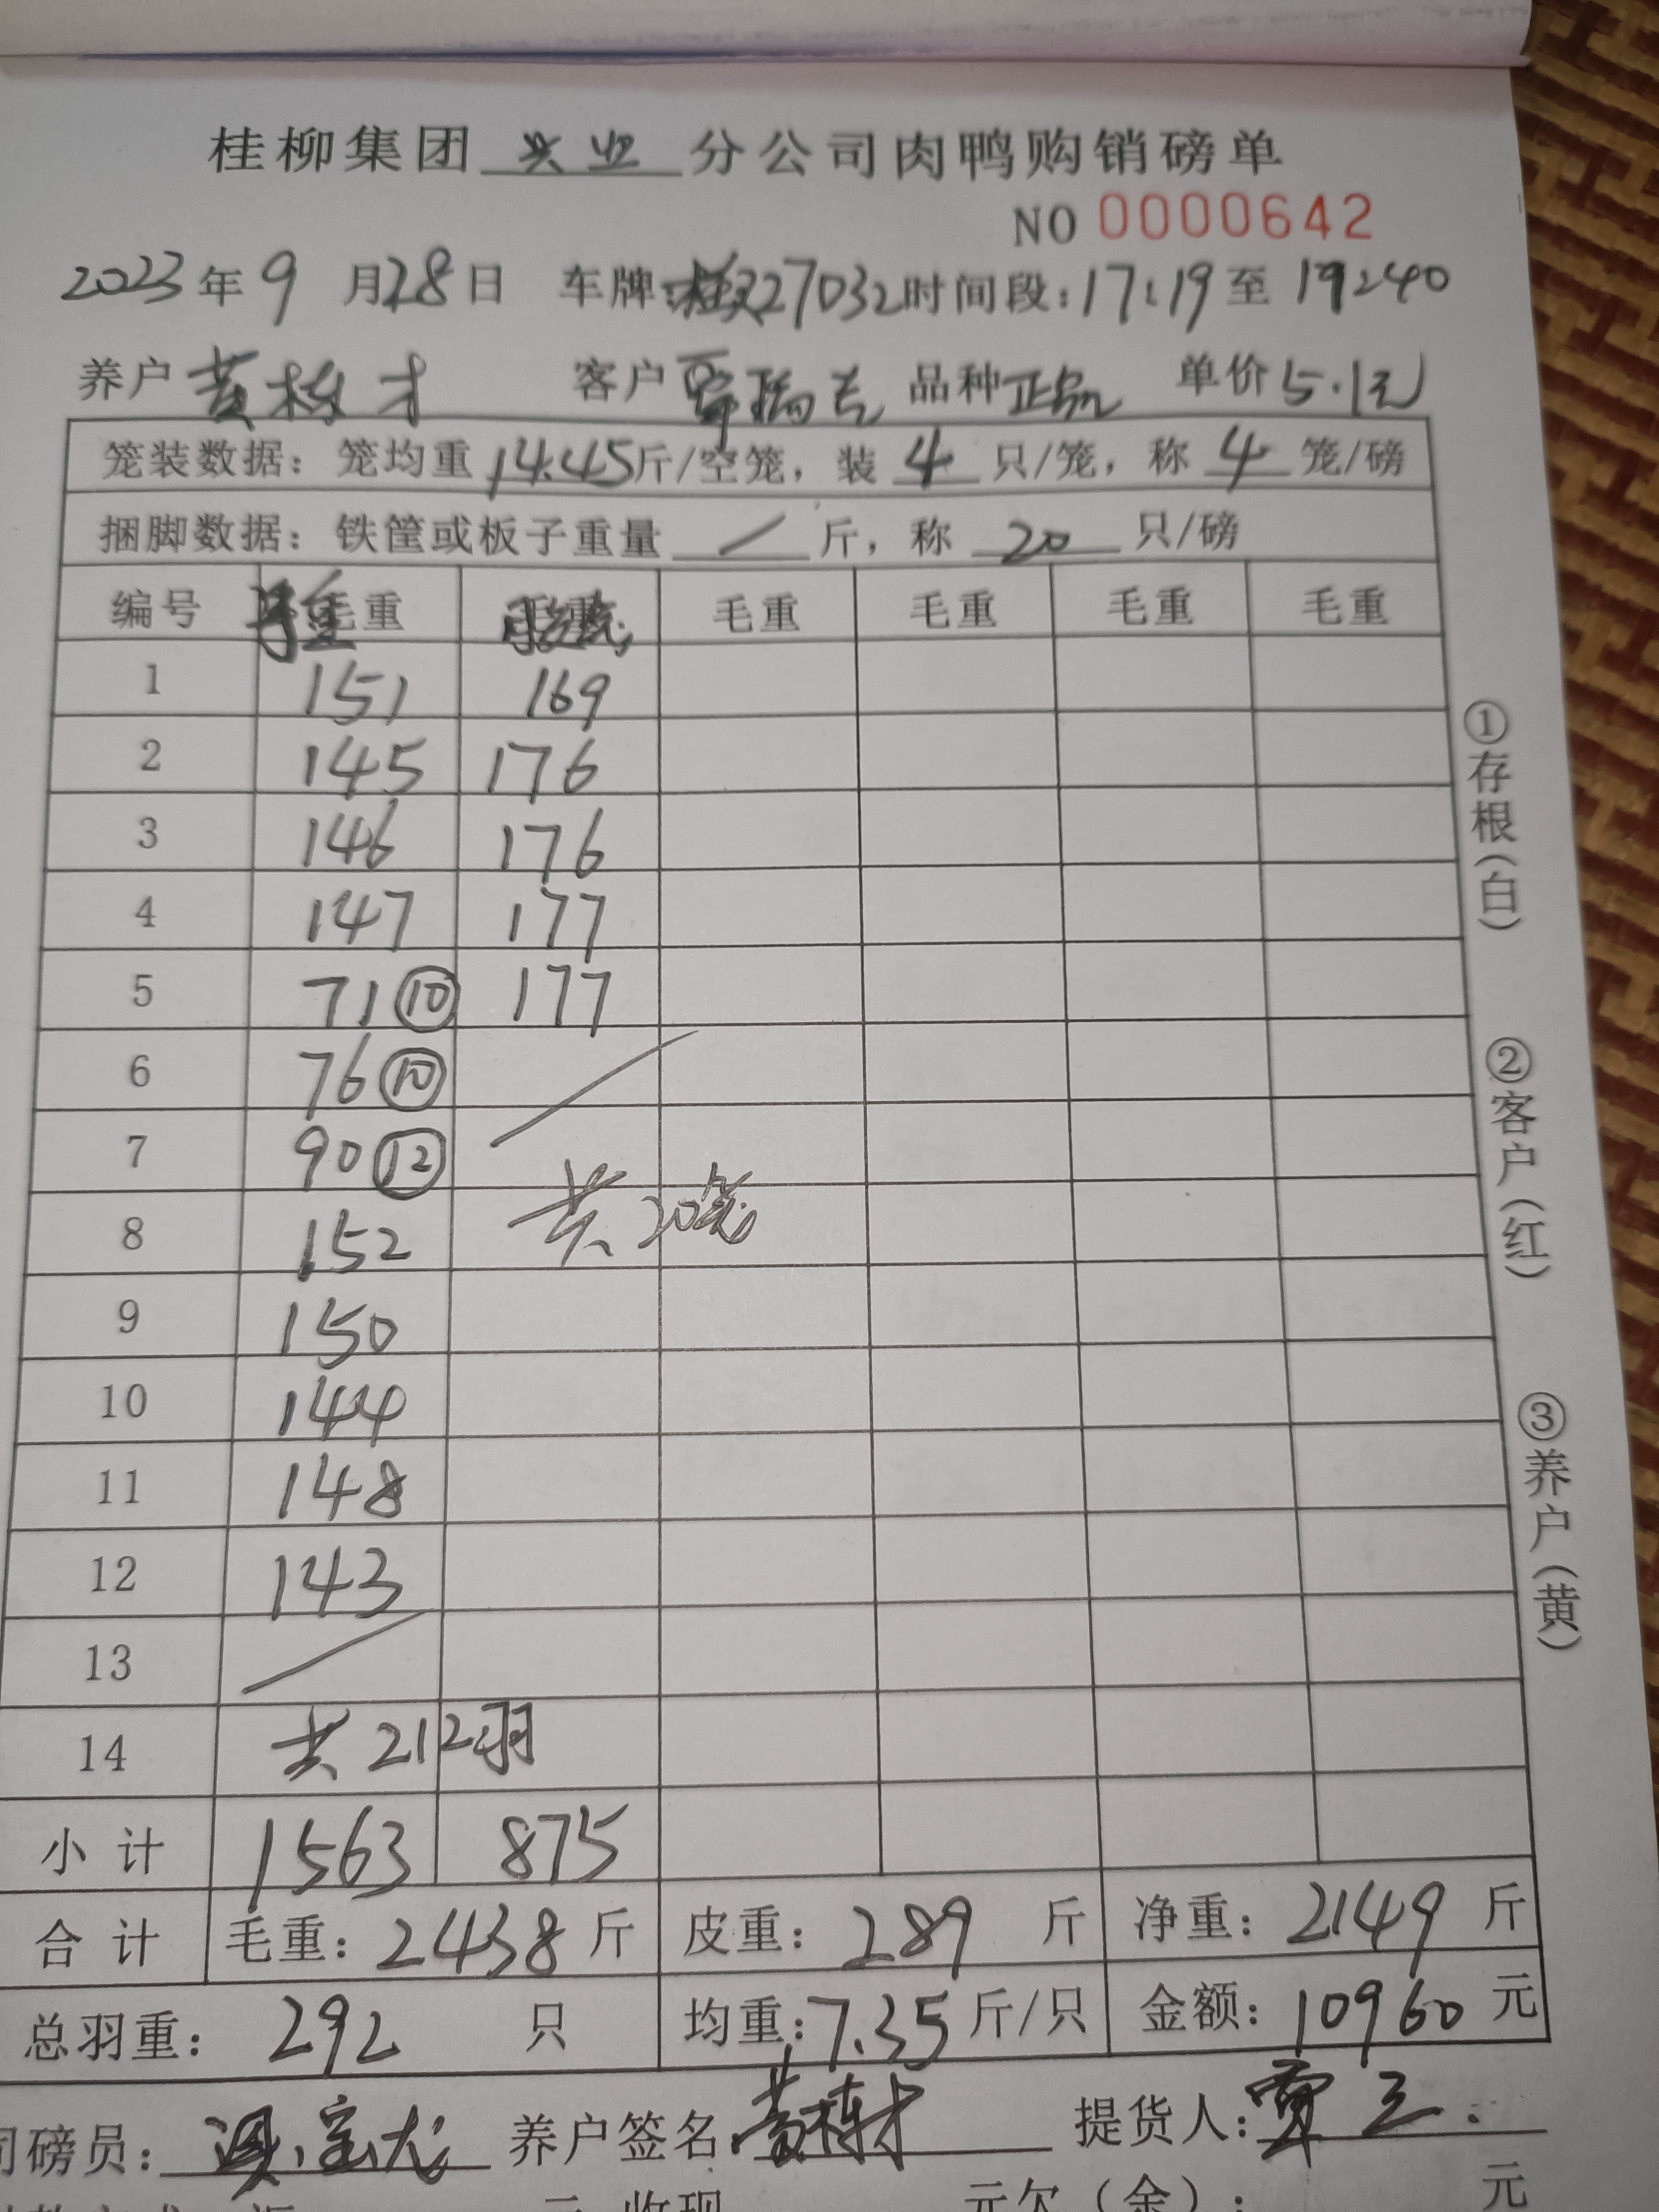 桂柳集团 兴业 分公司肉鸭购销磅单
NO 0000642
2023年9月28日 车牌:桂27032 时间段:17:19至19:40
养户 黄栋才 客户 覃瑞志 品种 正品 单价 5.1元
笼装数据：笼均重 14.45 斤/空笼，装 4 只/笼，称 4 笼/磅
捆脚数据：铁筐或板子重量 / 斤，称 20 只/磅
编号 毛重 毛重 毛重 毛重 毛重 毛重
1 151 169
2 145 176
3 146 176
4 147 177
5 71 ⑩ 177
6 76 ⑩
7 90 ⑫
8 152 共20笼
9 150
10 144
11 148
12 143
13
14 共212羽
小计 1563 875
合计 毛重：2438 斤 皮重：289 斤 净重：2149 斤
总羽重：292 只 均重：7.35 斤/只 金额：10960 元
司磅员： 养户签名 黄栋才 提货人：覃三
元 收现 元欠（金）： 元
①存根（白）
②客户（红）
③养户（黄）